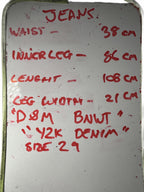 JEANS.
WAIST - 38 CM
INNER LEG - 86 CM
LENGHT - 108 CM
LEG WIDTH - 21 CM
"D&M BNWT"
"Y2K DENIM"
SIZE 29